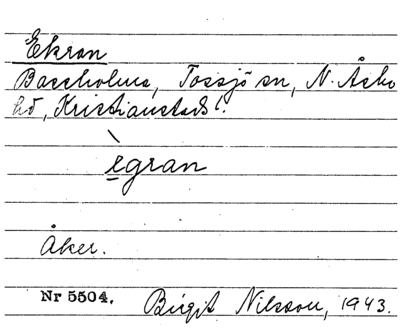 Ekran
Baceholma, Tossjö sn, N. Åsbo
hd, Kristianstads l.
ègran
Åker.
Nr 5504. Birgit Nilsson, 1943.